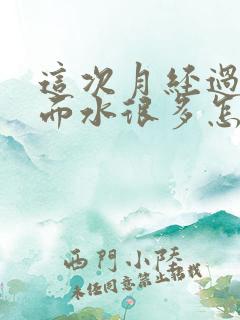 這次月經過
而水很多怎
西門小陸
未经同意禁止转载